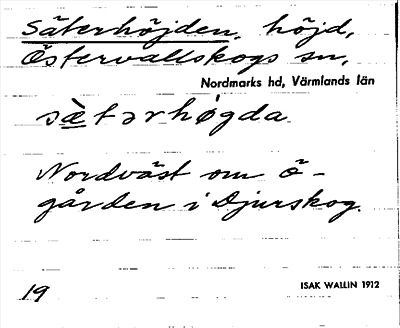 Säterhöjden, höjd,
Östervallskogs sn,
Nordmarks hd, Värmlands län
sæ̀tərhøgda
Nordväst om ö-
gården i Djurskog.
19 ISAK WALLIN 1912